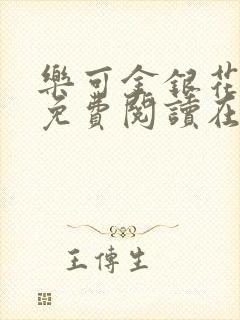 樂可金銀花
免費閱讀在
王傳生